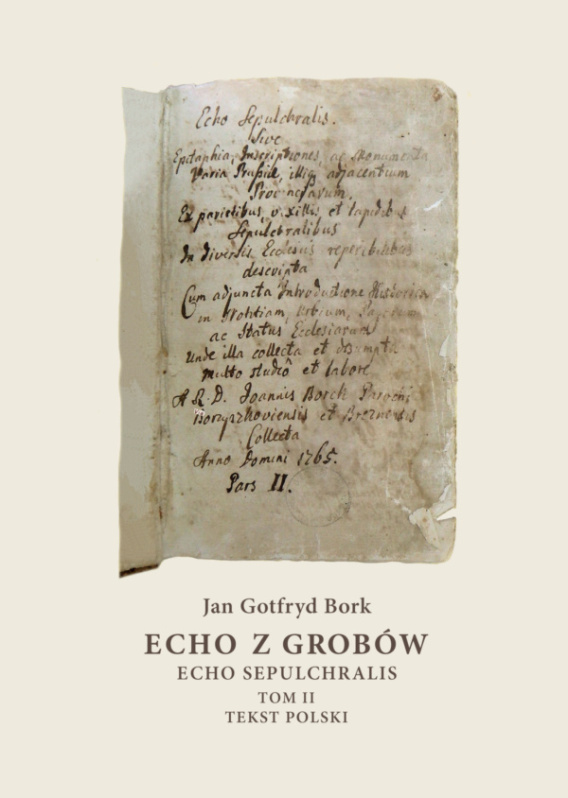 Echo Sepulchralis.
Sive
Epitaphia, Inscriptiones, ac Monumenta
Varia Prussiæ, illiq. adjacentium
Provinciarum,
Ex parietibus, vexillis, et lapidibus
Sepulchralibus
In diversis Ecclesiis reperibilibus
descripta
Cum adjuncta Introductione Historica
in Notitiam, Urbium, Pagorum
ac Status Ecclesiarum
Unde illa collecta et desumpta
multo studio et labore
A R. D. Joannis Borck Parochi
et
Collecta
Anno Domini 1765.
Pars II.
Jan Gotfryd Bork
ECHO Z GROBÓW
ECHO SEPULCHRALIS
TOM II
TEKST POLSKI